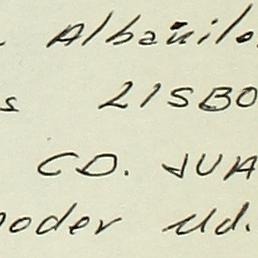 . Albañilo
s LISBO
CD. JUA
poder Ud.